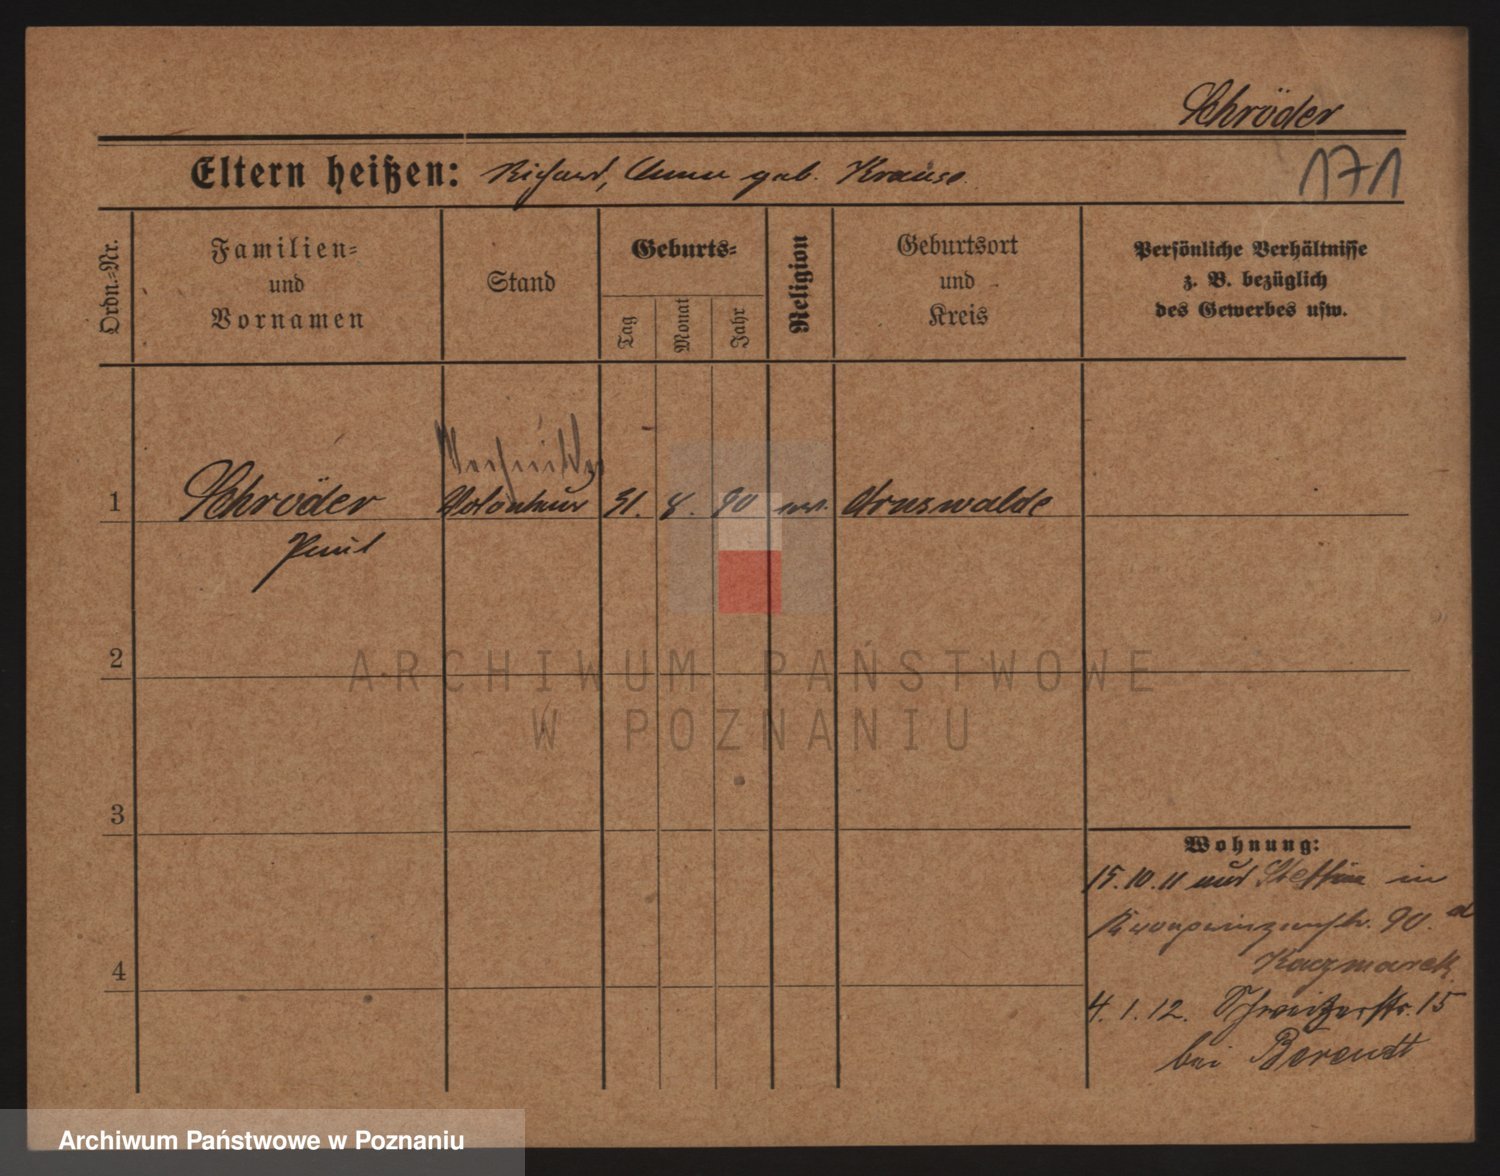 Schröder
Eltern heißen: Richard, Anna geb. Krause.
171
Ordn.-Nr.
Familien-
und
Vornamen
Stand
Geburts-
Tag
Monat
Jahr
Religion
Geburtsort
und
Kreis
Persönliche Verhältnisse
z. B. bezüglich
des Gewerbes usw.
1
Schröder
Paul
Volontär
31. 8. 90
ev.
Arnswalde
2
ARCHIWUM PAŃSTWOWE
W POZNANIU
3
4
Wohnung:
15.10.11 aus Stettin in
Kronprinzenstr. 90.
Kaczmarek
4.1.12. Schweitzerstr. 15
bei Berendt
Archiwum Państwowe w Poznaniu